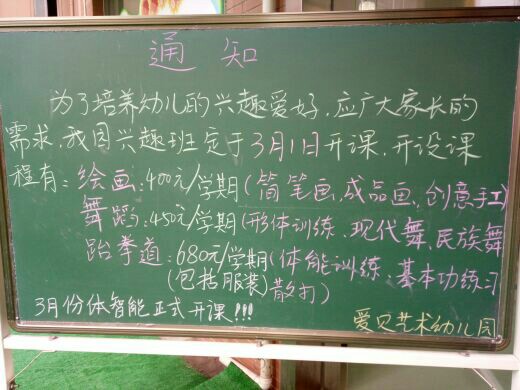 通知
为了培养幼儿的兴趣爱好，应广大家长的
需求，我园兴趣班定于3月11日开课，开设课
程有：绘画：400元/学期(简笔画、成品画、创意手工)
舞蹈：450元/学期(形体训练、现代舞、民族舞
跆拳道：680元/学期(体能训练、基本功练习
(包括服装) 散打)
3月份体智能正式开课!!!
爱贝艺术幼儿园